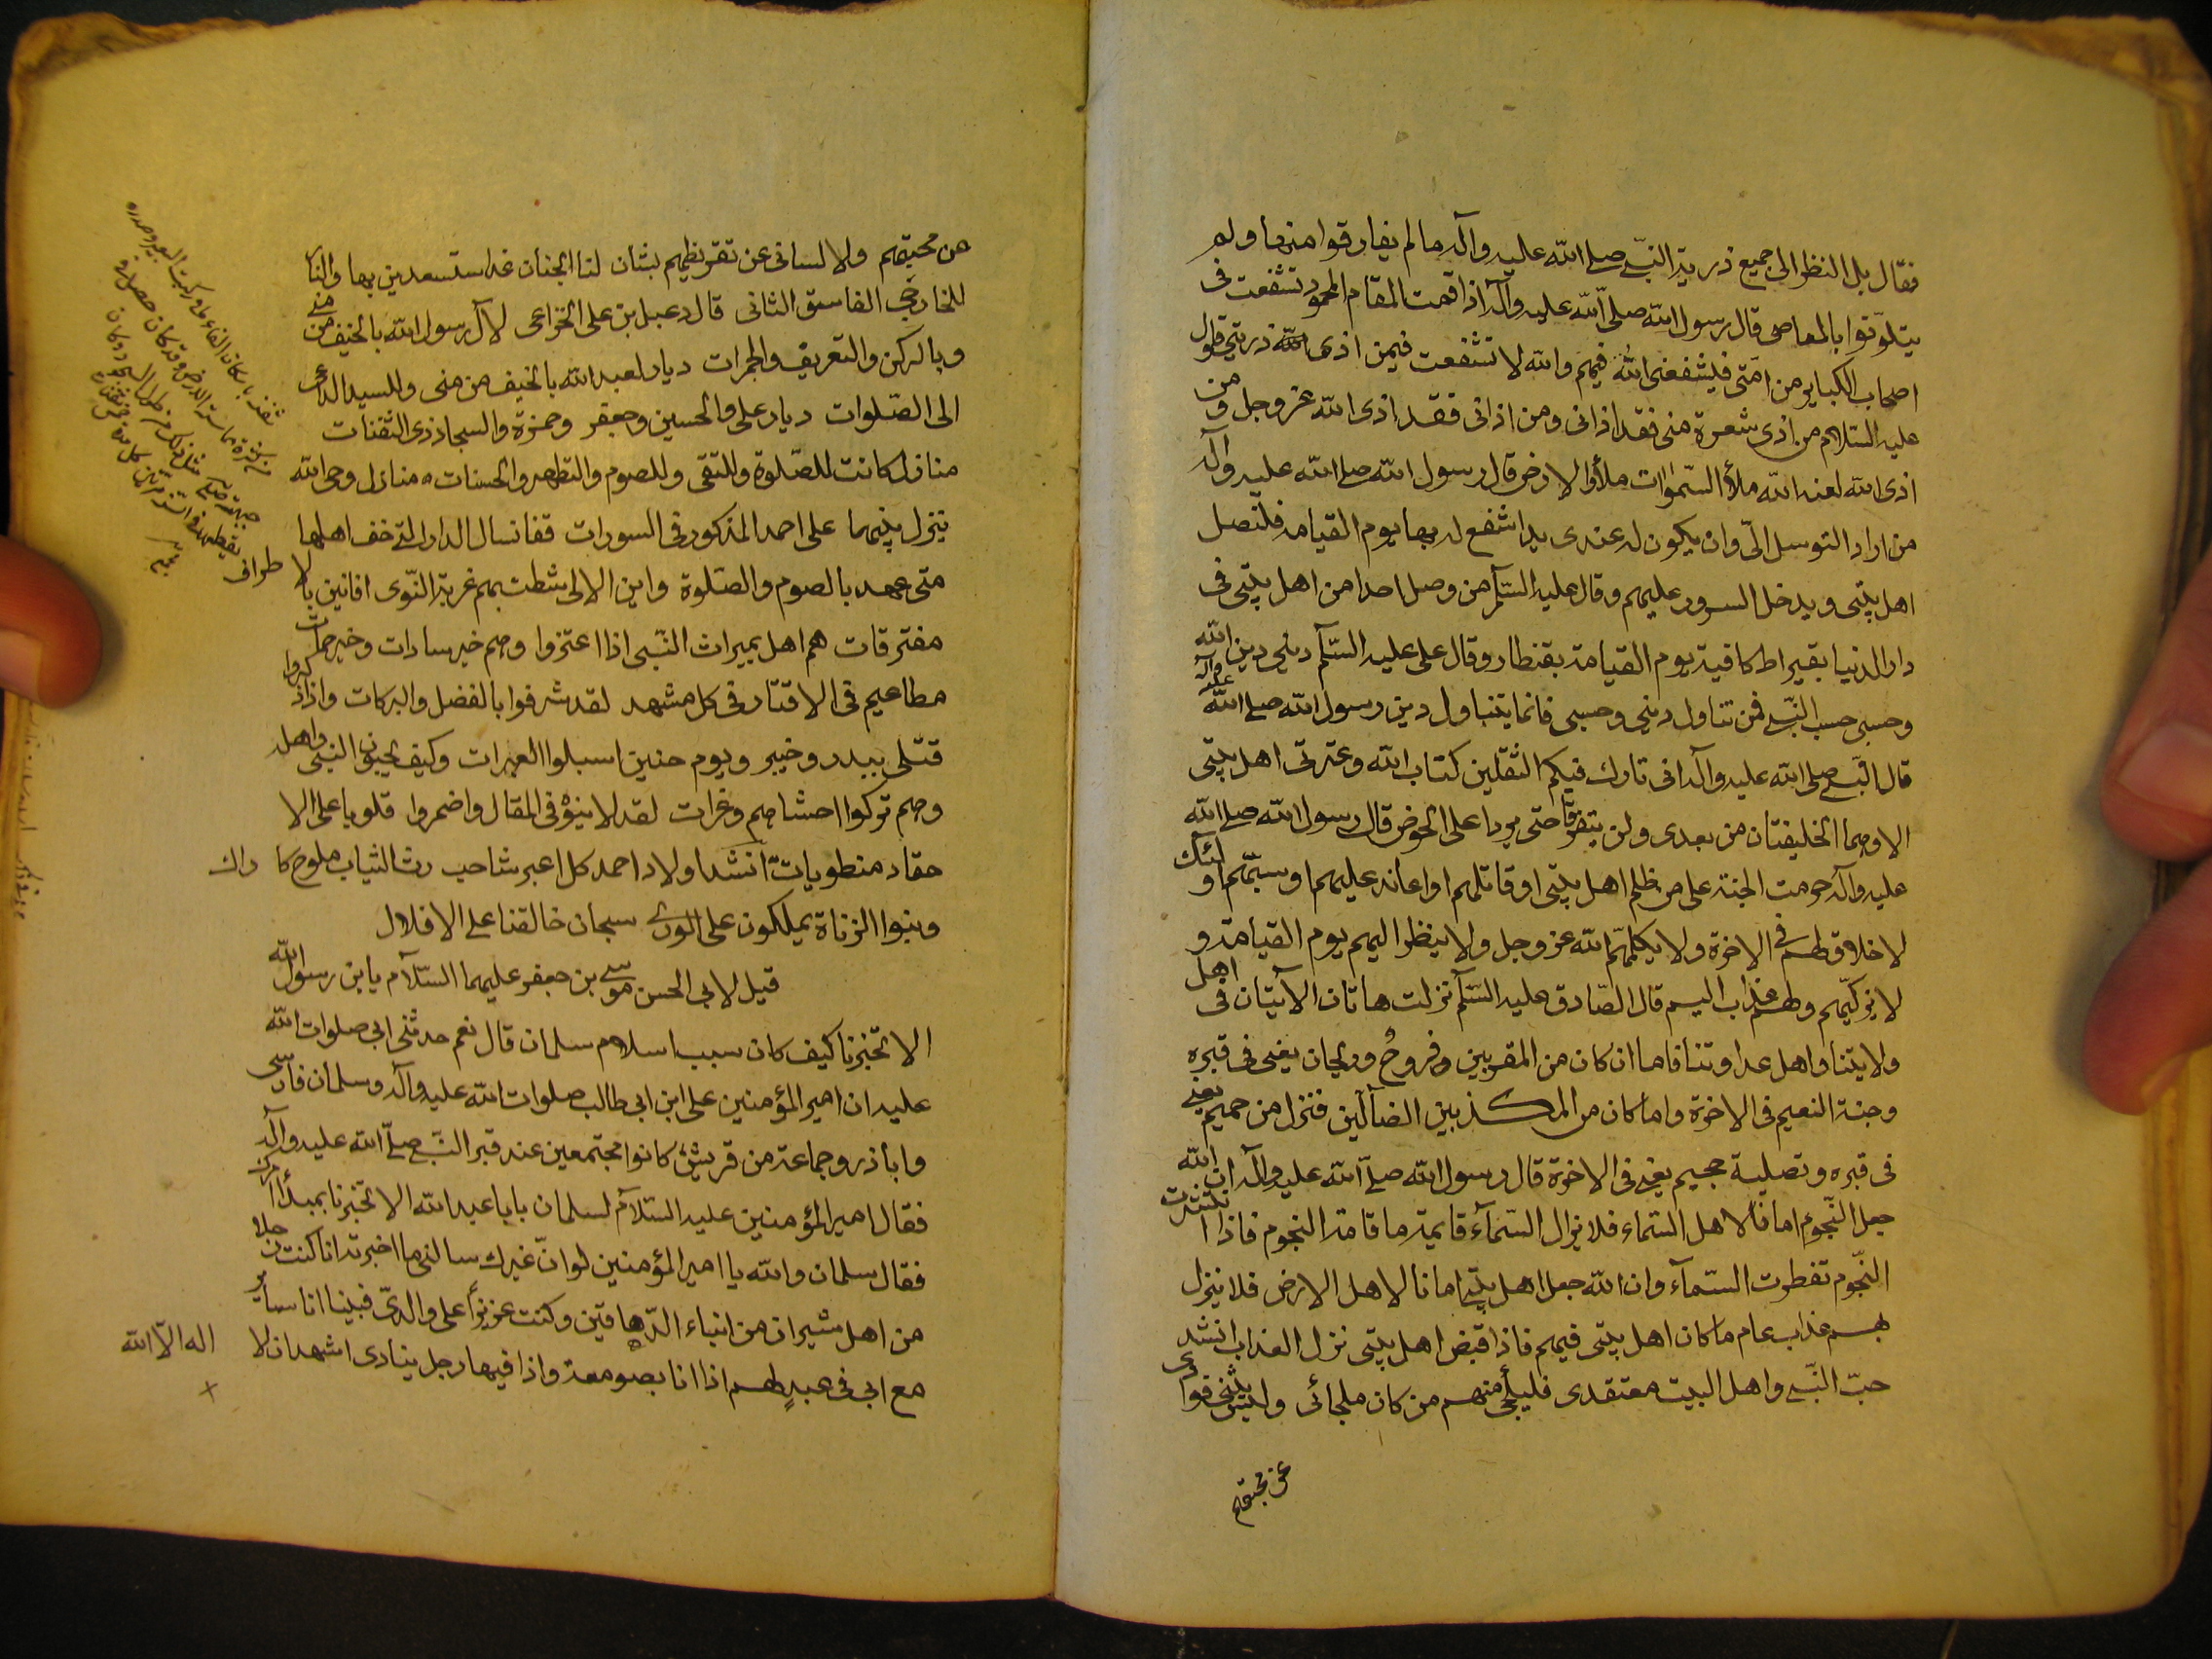 فقال بل النظر الى جميع ذرية النبي صلى الله عليه وآله ما لم يفارقوا منهاجه ولم
يتلوثوا بالمعاصى قال رسول الله صلى الله عليه وآله اذا قمت المقام المحمود تشفعت فى
اصحاب الكباير من امتى فيشفعنى الله فيهم والله لا تشفعت فيمن اذى ذريتى قال
عليه السلام من اذى شعرة منى فقد اذانى ومن اذانى فقد اذى الله عز وجل ومن
اذى الله لعنه الله ملأ السموات وملأ الارض قال رسول الله صلى الله عليه وآله
من اراد التوسل الىّ وان يكون له عندى يد اشفع له بها يوم القيامة فليصل
اهل بيتى ويدخل السرور عليهم وقال عليه السلم من وصل احدا من اهل بيتى فى
دار الدنيا بقيراط كافيته يوم القيامة بقنطار وقال على عليه السلم دينى دين الله
وحسبى حسب النبى فمن تناول دينى وحسبى فانما يتناول دين رسول الله صلى الله عليه وآله
قال النبى صلى الله عليه وآله انى تارك فيكم الثقلين كتاب الله وعترتى اهل بيتى
الا وهما الخليفتان من بعدى ولن يتفرقا حتى يردا على الحوض قال رسول الله صلى الله
عليه وآله حرمت الجنة على من ظلم اهل بيتى او قاتلهم او اعان عليهم او سبهم اولئك
لا خلاق لهم فى الاخرة ولا يكلمهم الله عز وجل ولا ينظر اليهم يوم القيامة و
لا يزكيهم ولهم عذاب اليم قال الصادق عليه السلم نزلت هاتان الآيتان فى اهل
ولايتنا واهل عداوتنا فاما ان كان من المقربين فروح وريحان يعنى فى قبره
وجنة النعيم فى الاخرة واما كان من المكذبين الضالين فنزل من حميم يعنى
فى قبره وتصلية جحيم يعنى فى الاخرة قال رسول الله صلى الله عليه وآله ان الله
جعل النجوم امانا لاهل السماء فلا يزال السماء قايمة ما قامة النجوم فاذا انتشرت
النجوم تفطرت السماء وان الله جعل اهل بيتى امانا لاهل الارض فلا ينزل
بهم عذاب عام ما كان اهل بيتى فيهم فاذا قبض اهل بيتى نزل العذاب انشد
حبّ النبى واهل البيت معتقدى فليلجئ منهم من كان ملجائى وليس يثنى فوادى
عن محبتهم
عن محبتهم ولا لسانى عن تقريظهم بثان لنا الجنان غدا ستسعدين بها والنار
للخارجى الفاسق الثانى قال دعبل بن على الخزاعى لآل رسول الله بالخيف من منى
وبالركن والتعريف والجمرات ديار لعبد الله بالخيف من منى وللسيد الداعى
الى الصلوات ديار على والحسين وجعفر وحمزة والسجاد ذى الثفنات
منازل كانت للصلوة وللتقى وللصوم والتطهر والحسنات منازل وحى الله
ينزل بينهما على احمد المذكور فى السورات قفا نسال الدار التى خف اهلها
متى عهد بالصوم والصلوة واين الالى شطت بهم غربة النوى افانين بالاطراف
مفترقات هم اهل ميراث النبى اذا اعتزوا وهم خير سادات وخير حمات
مطاعيم فى الاقتار فى كل مشهد لقد شرفوا بالفضل والبركات واذا ذكروا
قتلى ببدر وخيبر ويوم حنين اسبلوا العبرات وكيف يحبون النبى واهله
وهم تركوا احشاهم وغرات لقد لاينوه فى المقال واضمروا قلوبا على الا
حقاد منطويات انشد اولاد احمد كل اغبر شاحب رث الثياب ملوح كا راك
وبنوا الزناة يملكون على الورى سبحان خالقنا على الافلال
قيل لابى الحسن موسى بن جعفر عليهما السلام يا بن رسول الله
الا تخبرنا كيف كان سبب اسلام سلمان قال نعم حدثنى ابى صلوات الله
عليه ان امير المؤمنين على ابن ابى طالب صلوات الله عليه وآله وسلمان فارسى
وابا ذر وجماعة من قريش كانوا مجتمعين عند قبر النبى صلى الله عليه وآله
فقال امير المؤمنين عليه السلام لسلمان يابا عبد الله الا تخبرنا بمبدأ امرك
فقال سلمان والله يا امير المؤمنين لو انّ غيرك سالنى ما اخبرته انا كنت رجلا
من اهل شيران من ابناء الدهاقين وكنت عزيزا على والدىّ فبينا انا ساير
مع ابى فى عيد لهم اذا انا بصومعة واذا فيها رجل ينادى اشهد ان لا اله الا الله